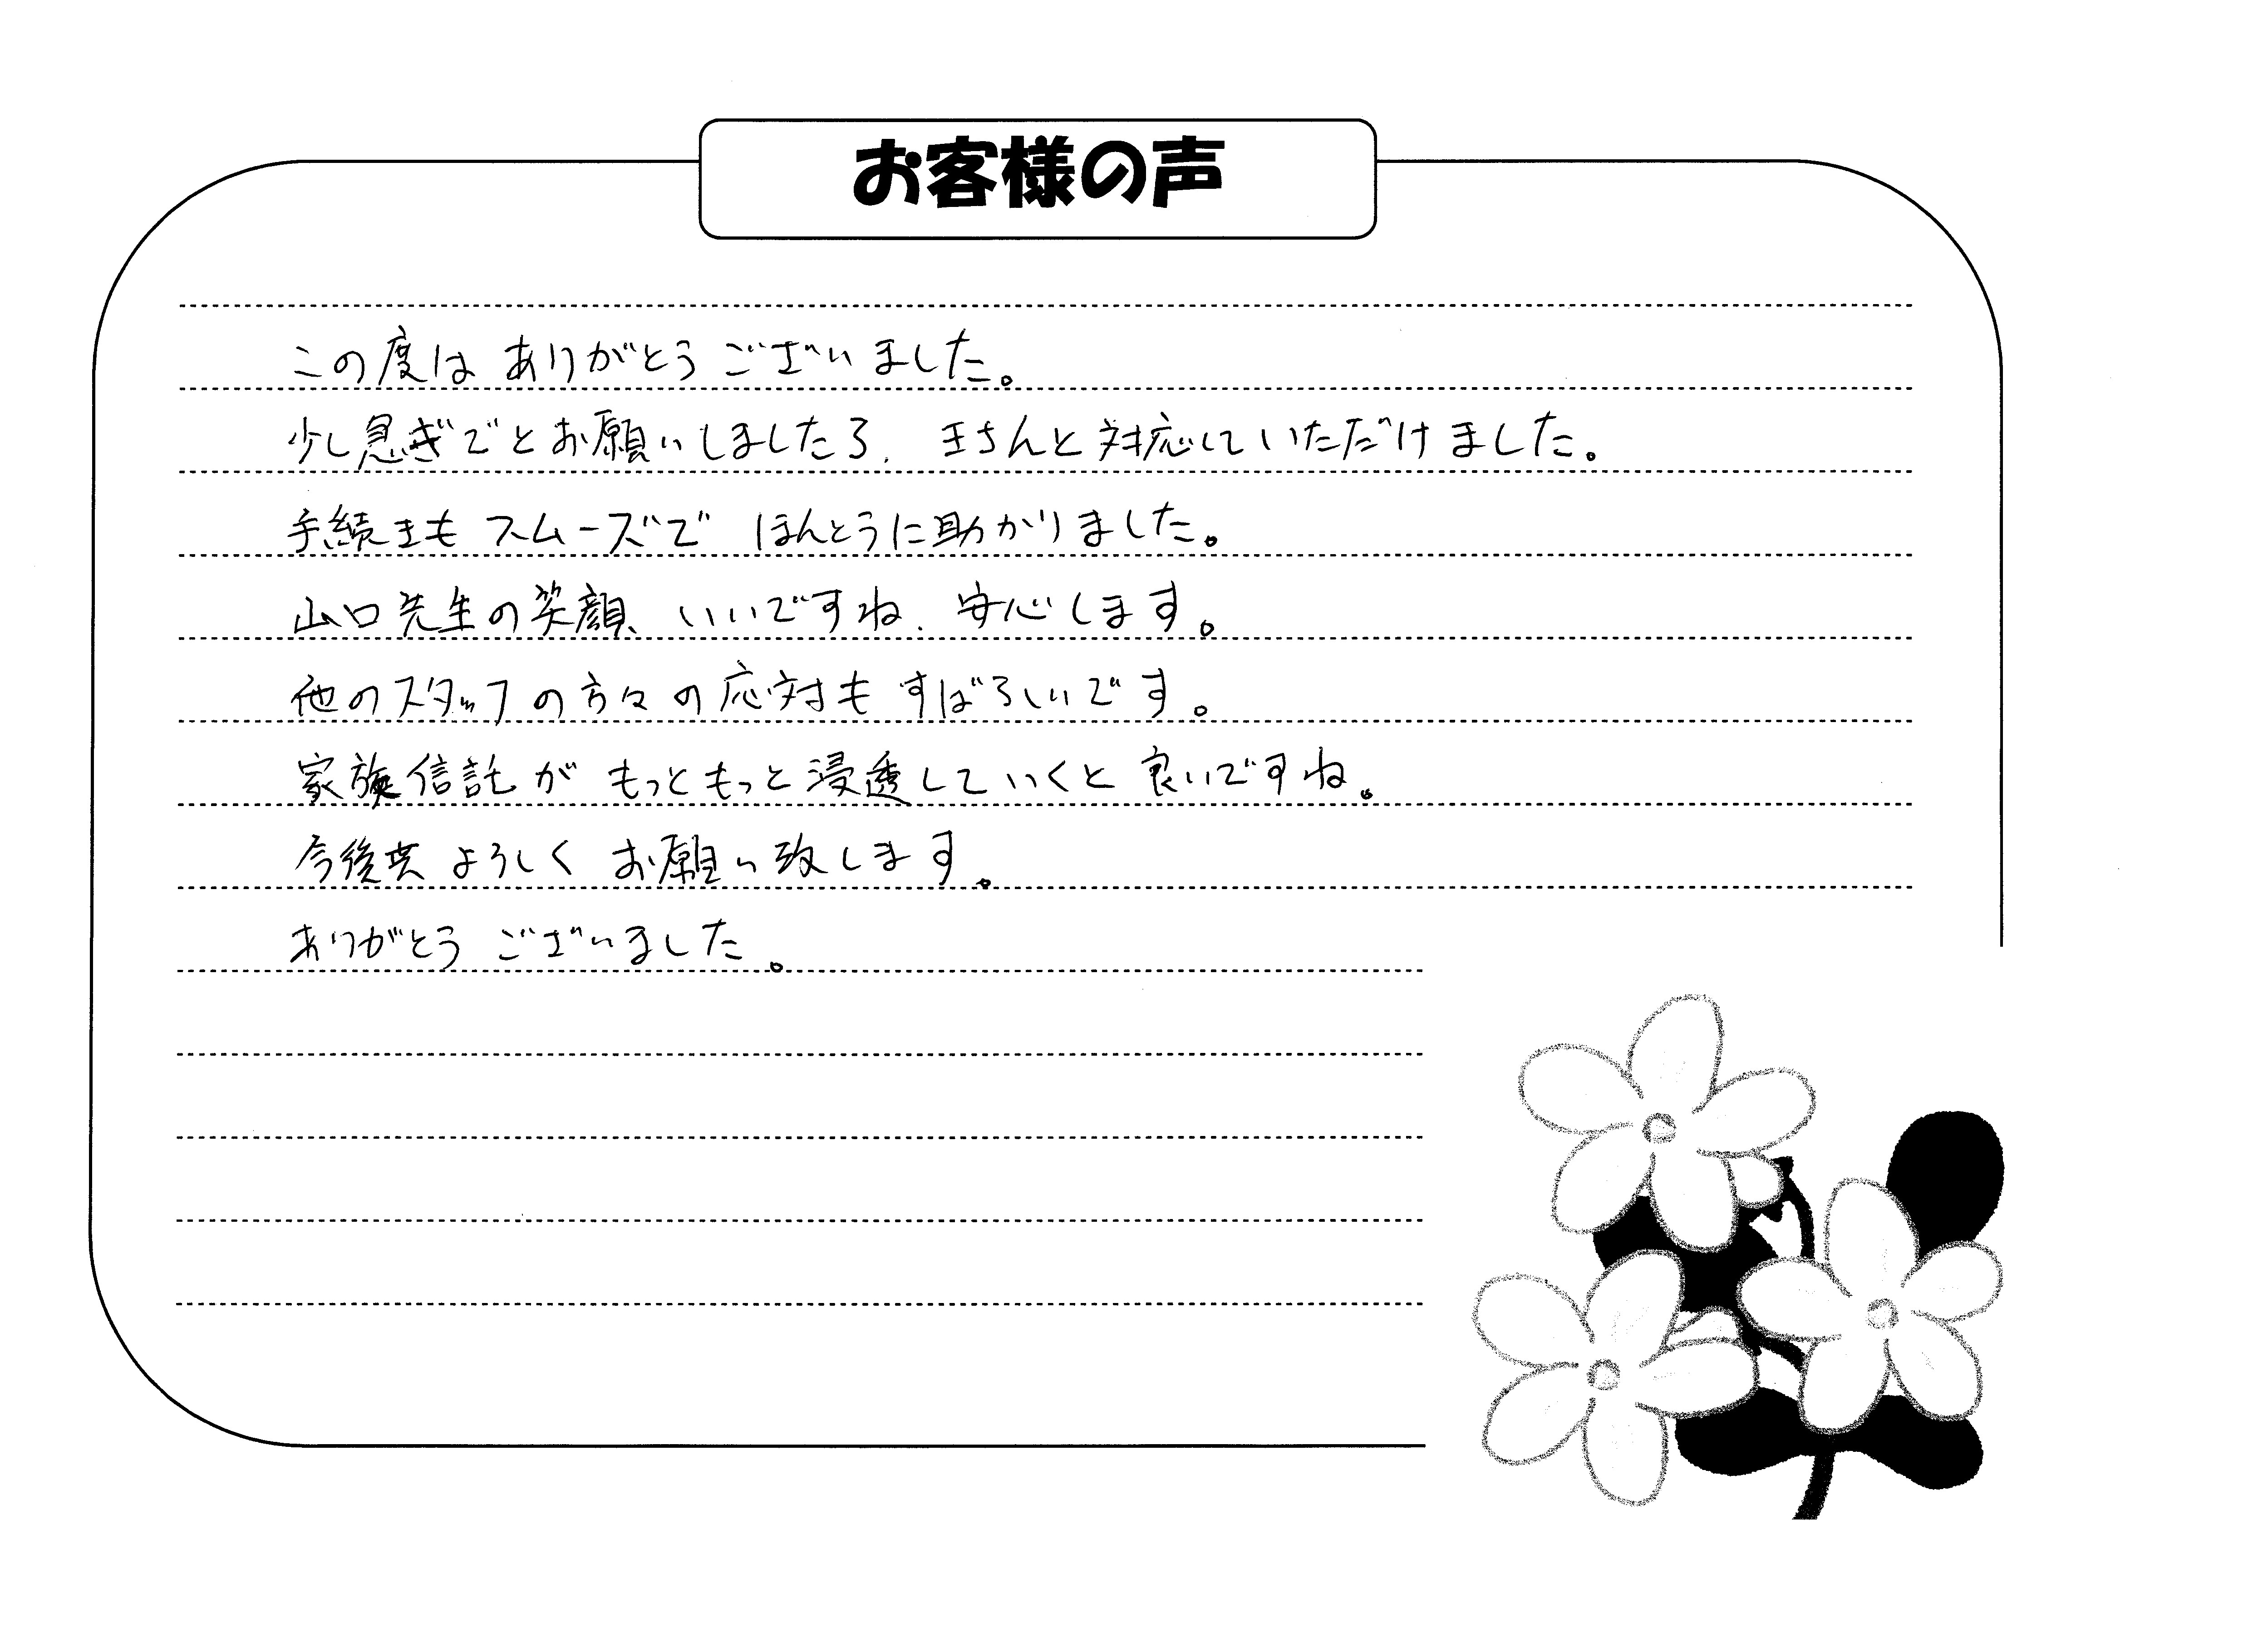 お客様の声
この度は ありがとう ございました。
少し急ぎでとお願いしましたら、きちんと対応していただけました。
手続きも スムーズで ほんとうに助かりました。
山口先生の笑顔、いいですね、安心します。
他のスタッフの方々の応対も すばらしいです。
家族信託が もっともっと浸透していくと 良いですね。
今後共 よろしく お願い致します。
ありがとう ございました。